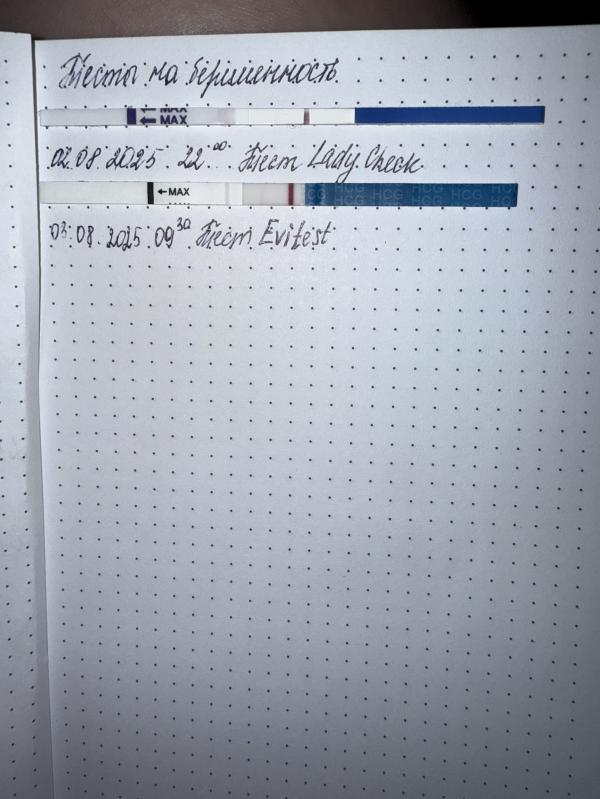 Тесты на беременность
← MAX
← MAX
02.08.2025 22⁰⁰ Тест Lady Check
←MAX
HCG HCG HCG HCG HCG
03.08.2025 09³⁰ Тест Evitest